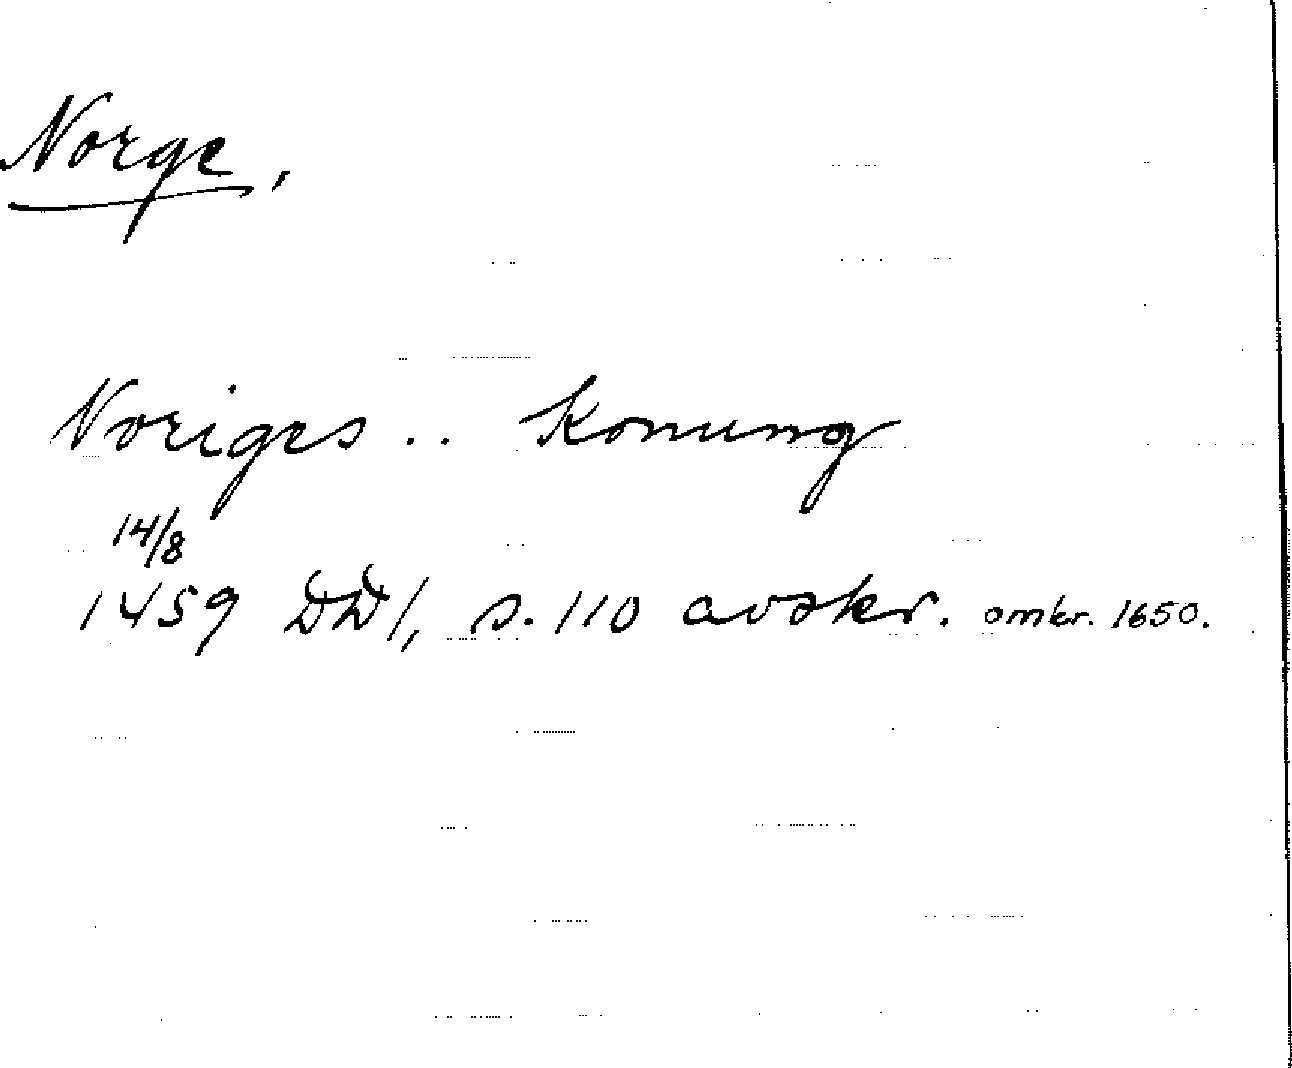 Norge,
Noriges .. Konung
14/8
1459 DD1, s. 110 avskr. omkr. 1650.